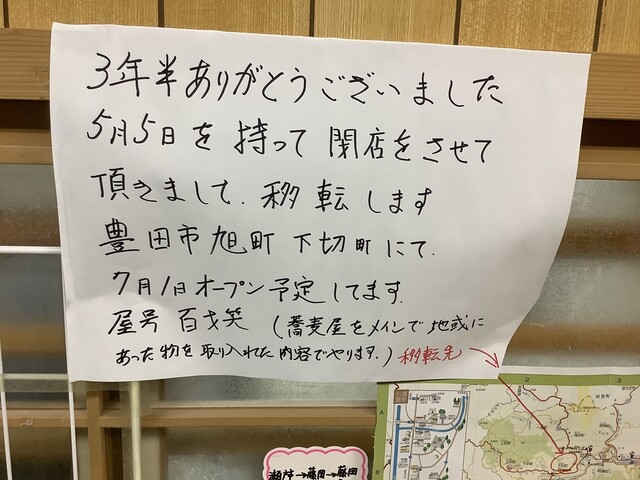 3年半ありがとうございました
5月5日を持って閉店をさせて
頂きまして、移転します
豊田市旭町下切町にて、
7月1日オープン予定してます。
屋号 百才笑 (蕎麦屋をメインで地域に
あった物を取り入れた内容でやります。) 移転先
2
3
A
B